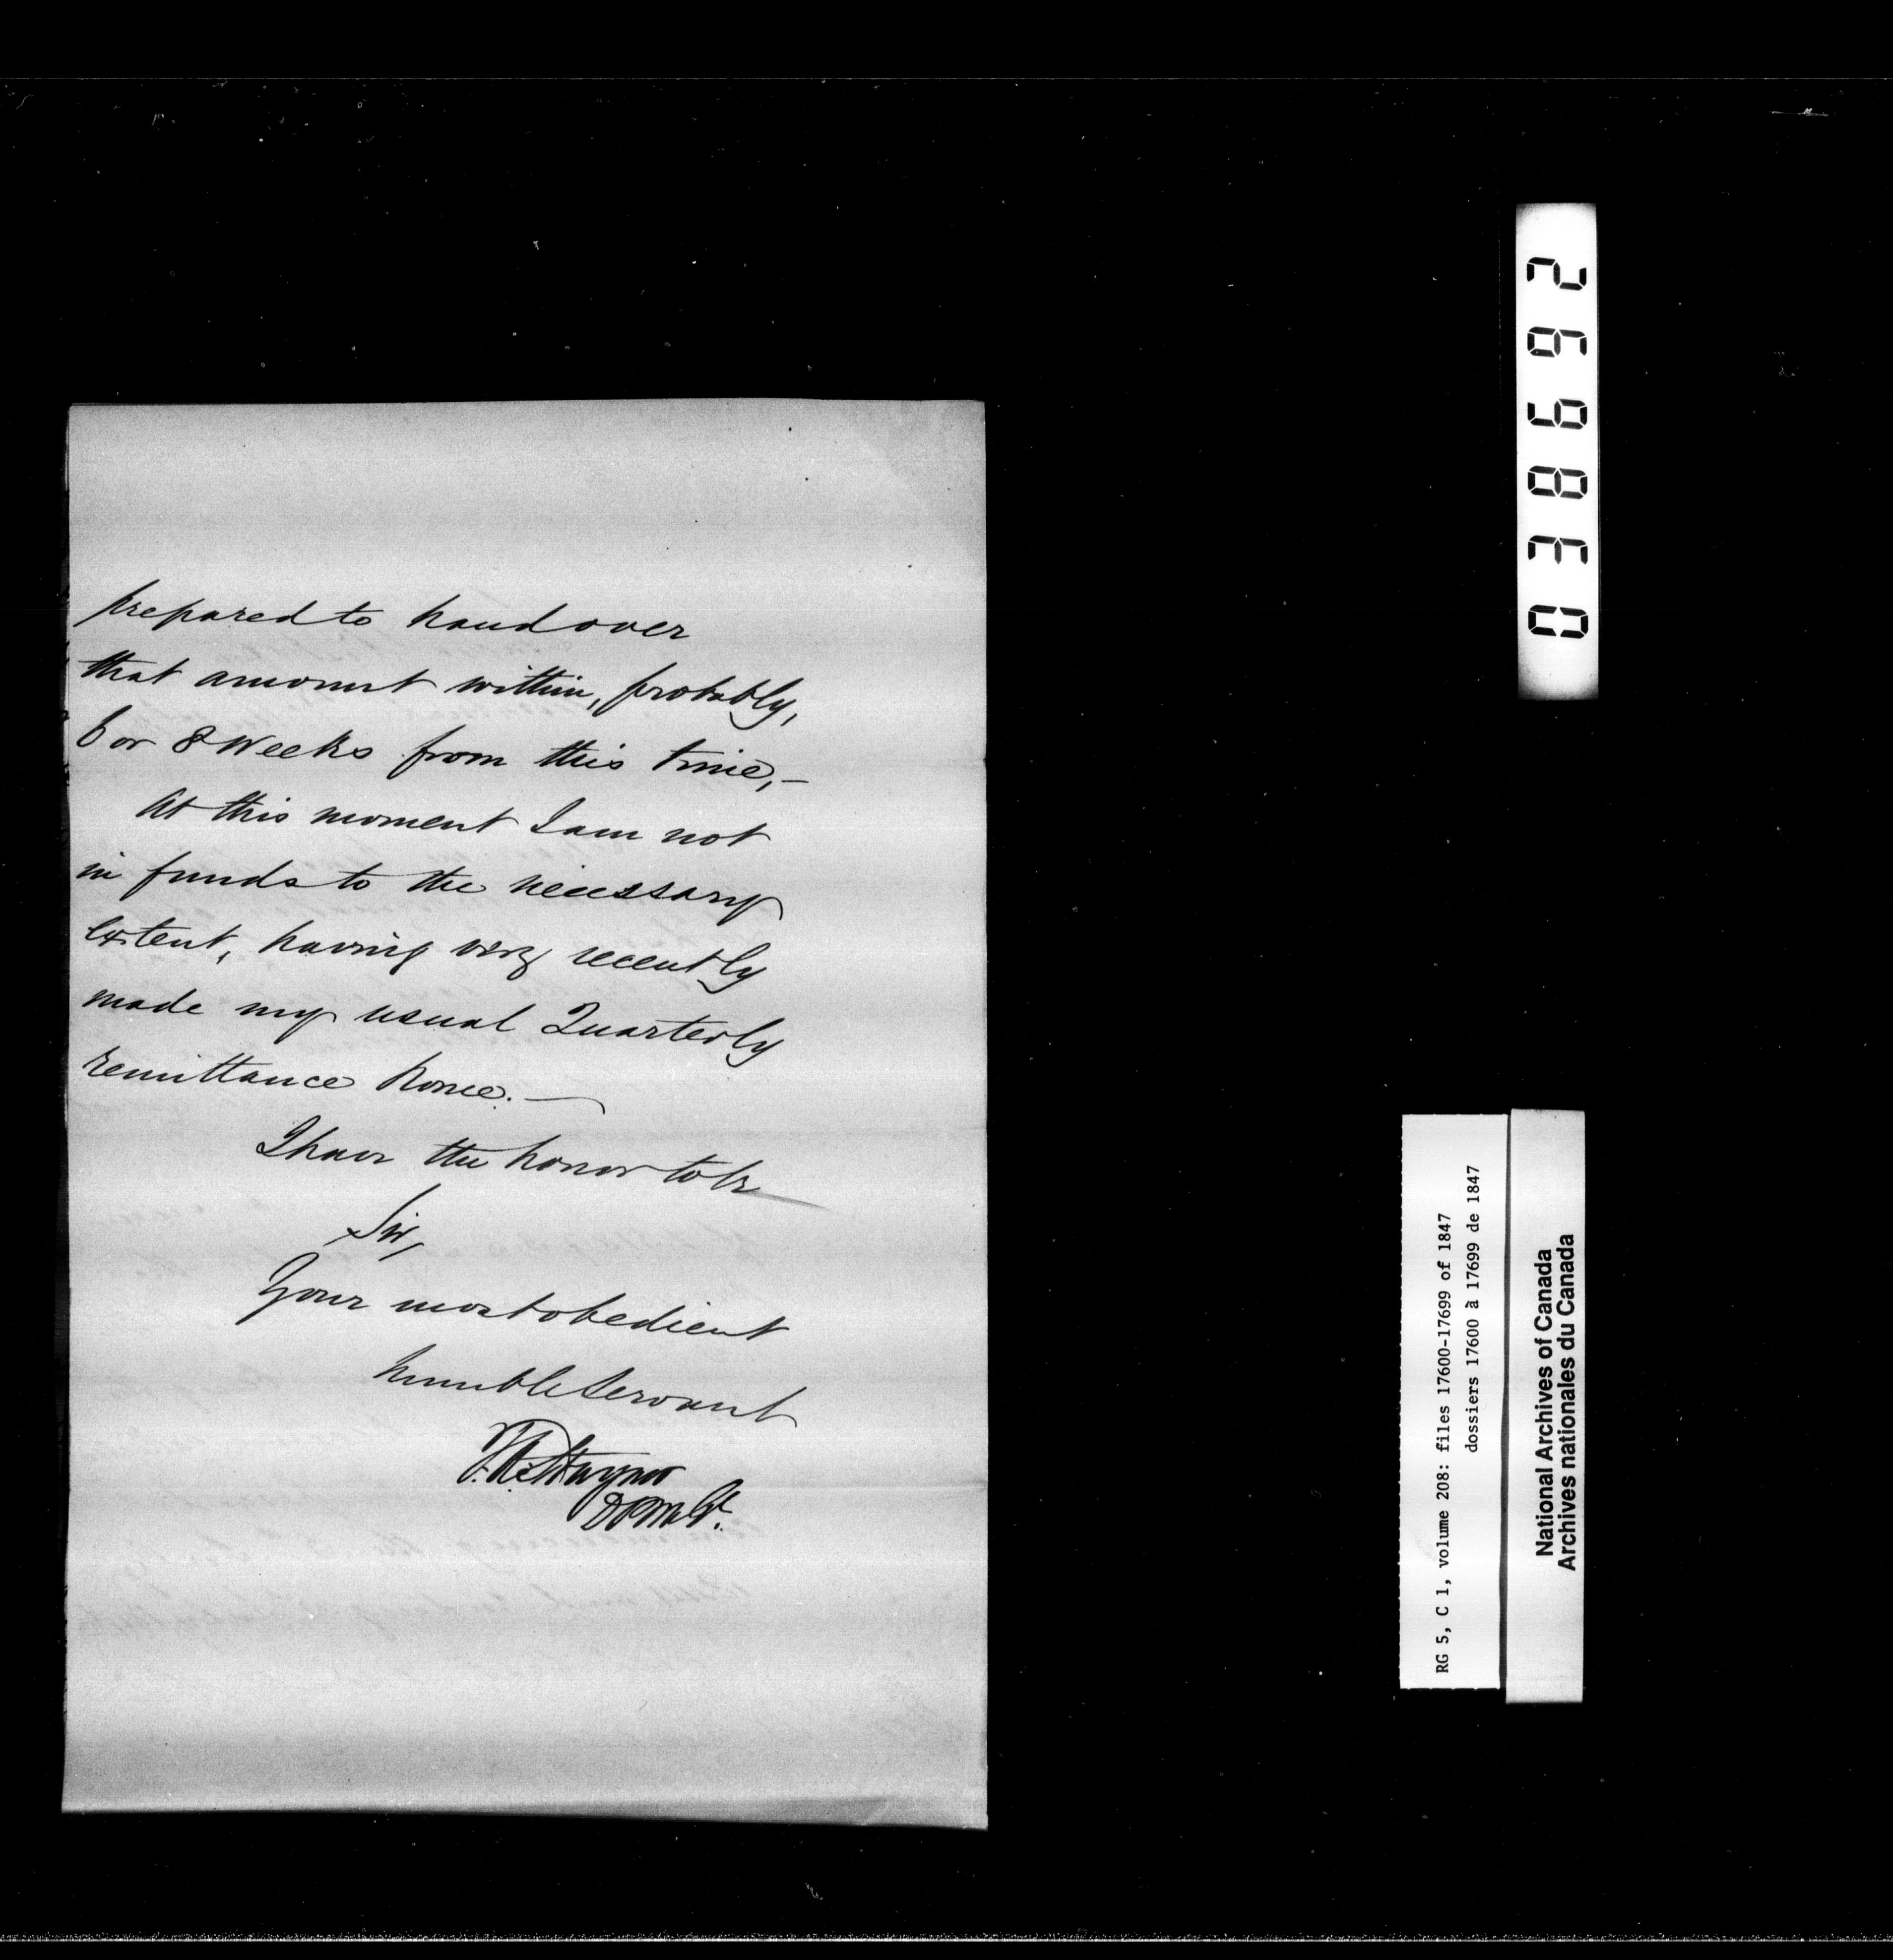 prepared to hand over
that amount within, probably,
6 or 8 Weeks from this time,—
At this moment I am not
in funds to the necessary
extent, having very recently
made my usual Quarterly
remittance home.—
I have the honor to be
Sir,
Your most obedient
humble servant
T.A. Stayner
DPMGl.
038692
RG 5, C 1, volume 208: files 17600-17699 of 1847
dossiers 17600 à 17699 de 1847
National Archives of Canada
Archives nationales du Canada